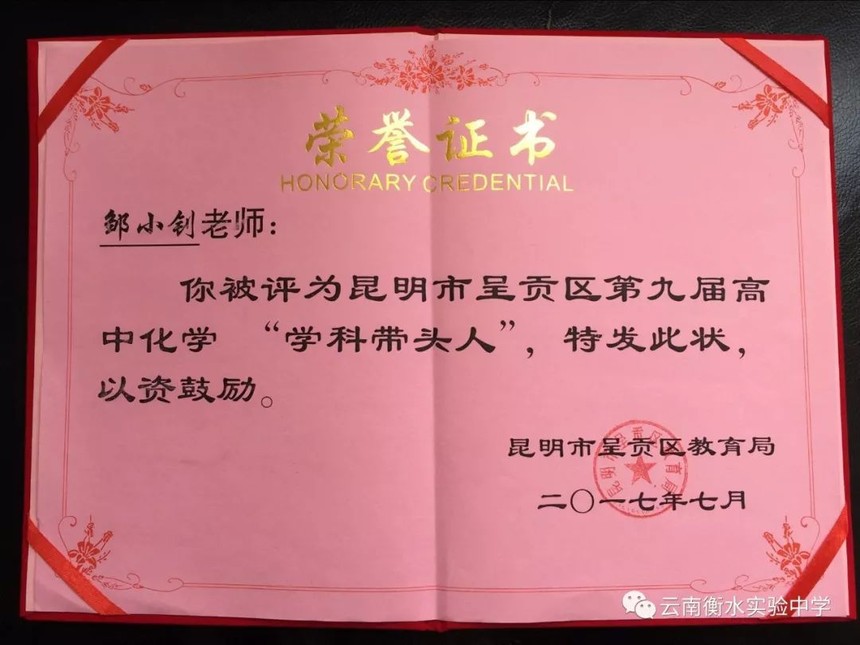 荣誉证书
HONORARY CREDENTIAL
邹小钊老师：
你被评为昆明市呈贡区第九届高
中化学 “学科带头人”，特发此状，
以资鼓励。
昆明市呈贡区教育局
二〇一七年七月
昆明市呈贡区教育局
云南衡水实验中学